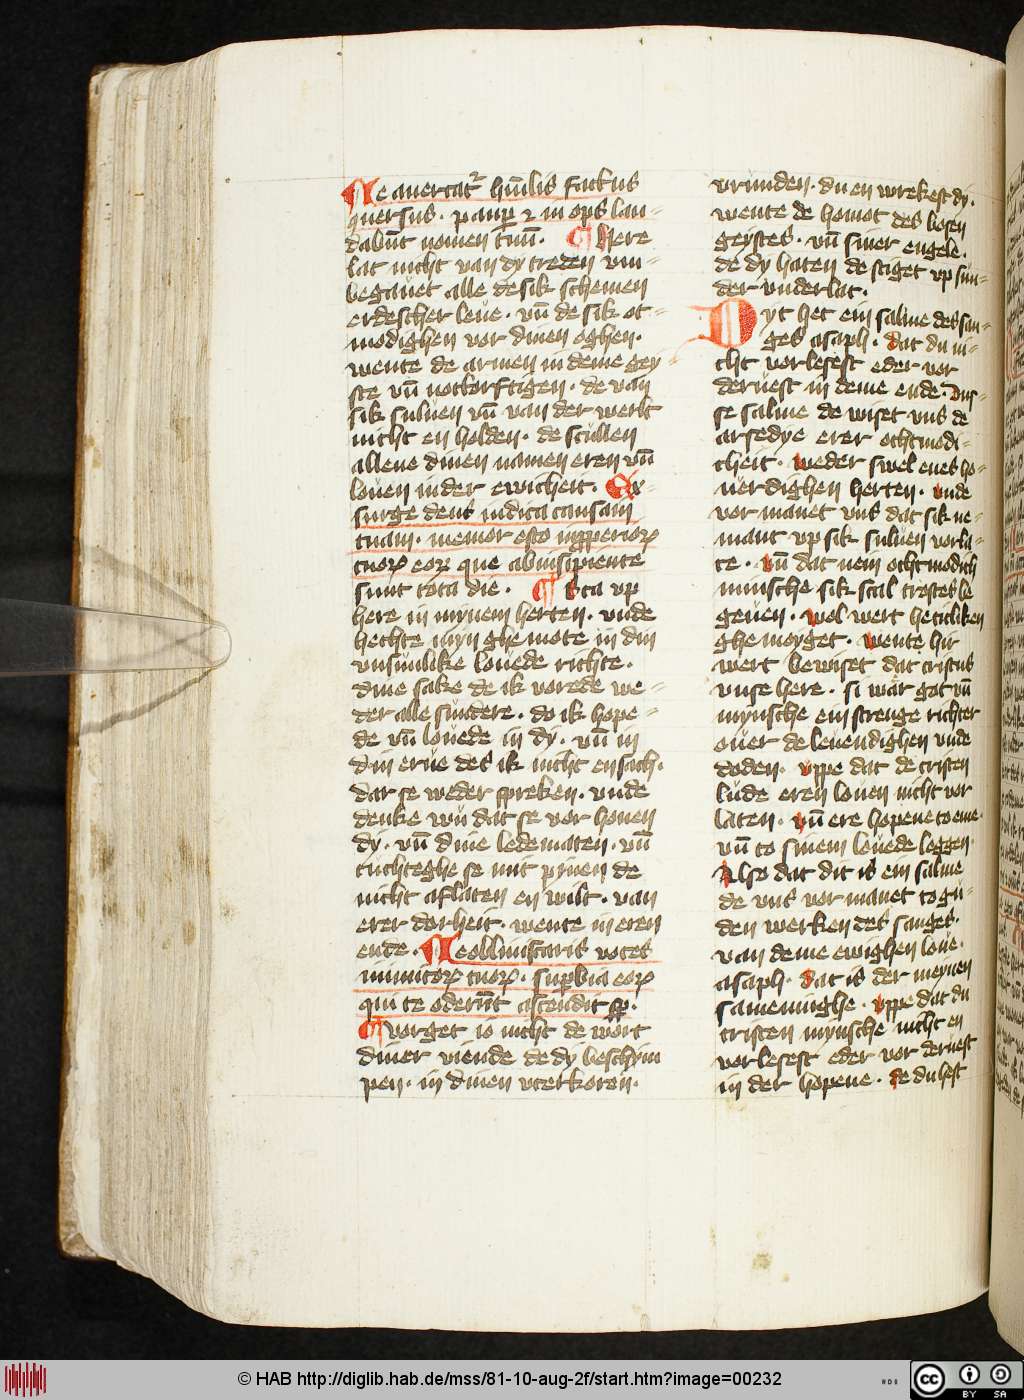 Ne auertat᷑ hūilis factus
quersus · paup̄ ⁊ in ops lau-
dabūt nomen tuū. ¶ Here
lat nicht van dy treden vm-
begauet alle de sik schemen
erdescher leue · vn̄ de sik ot-
modighen vor dinen oghen·
wente de armen in deme gey-
ste vn̄ notdorftigen · de van
sik suluen vn̄ van der werlt
nicht en holden · de scullen
allene dinen namen eren vn̄
louen in der ewicheit · Ex-
surge deus iudica causam
tuam · memor esto
tuoꝝ eoꝝ que ab insipiente
sunt tota die · ¶ Sta vp
here in mynem herten · vnde
hechte myn ghemote in din
vnsunlike louede richte ·
dine sake de ik vorede we-
der alle sundere · do ik hope-
de vn̄ louede in dy · vn̄ in
din erue des ik nicht en sach·
dar se weder spreken · vnde
denke wu dat se vor honen
dy · vn̄ dine ledematen · vn̄
tuchteghe se mit pinen de
nicht aflaten en wilt · van
erer dorheit · wente in eren
ende · Ne obliuiscaris voces
inimicoꝝ tuoꝝ · supbia eoꝝ
qui te oderūt ascendit sp̄·
¶ vorget io nicht de wort
diner viende de dy beschym
pen · in dinen vterkoren·
vrunden · du en wrekest dy ·
wente de homot des bosen
geystes · vn̄ siner engele ·
de dy haten de stiget vp sun-
der vnderlat ·
Dyt het ein salme des san-
ges asaph · dat du ni-
cht vorlesest eder vor
deruest in deme ende · Dus-
se salme de wiset vns de
arsedye erer othmodi-
cheit · weder swel enes ho-
uerdighen herten · vnde
vormanet vns dat sik ne-
mant vp sik suluen vorla-
te · vn̄ dat nein othmodich
minsche sik scal trostes be
geuen · wol wert he
ghemoyget · wente hir
wert bewiset dat cristus
vnse here · si war got vn̄
mynsche ein strenge richter
ouer de leuendighen vnde
doden · vppe dat de cristen
lude eren louen nicht vor
laten · vn̄ ere hopene to eme·
vn̄ to sinem louede leggen·
Also dat dit is ein salme
de vns vormanet to gu-
den werken des sanges·
van deme ewighen loue ·
asaph · dat is der meynen
sameninghe · vppe dat du
cristen mynsche nicht en
vorlesest eder vor deruest
in der hopene · de du hest
© HAB http://diglib.hab.de/mss/81-10-aug-2f/start.htm?image=00232
cc BY SA